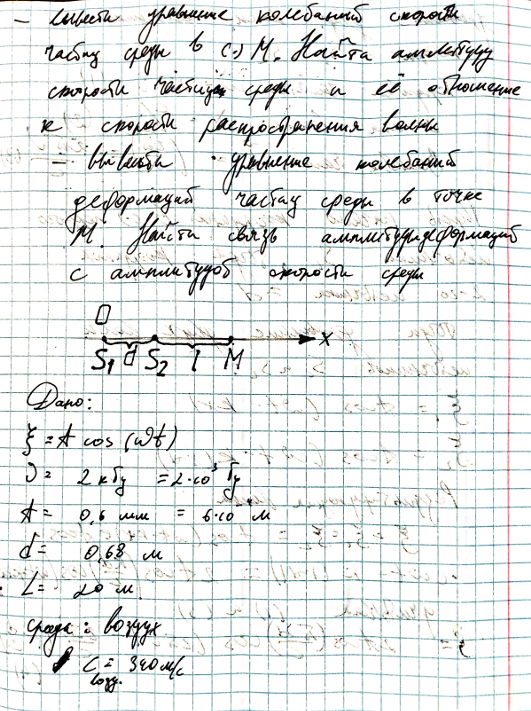 – вывести уравнение колебаний скорости
частиц среды в (·) М. Найти амплитуду
скорости частиц среды и её отношение
к скорости распространения волны
– вывести уравнение колебаний
деформаций частиц среды в точке
М. Найти связь амплитуды деформаций
с амплитудой скорости среды
O
S₁ d S₂ l M x
Дано:
ξ = A cos (ωt)
ν = 2 кГц = 2·10³ Гц
A = 0,6 мм = 6·10⁻⁴ м
d = 0,68 м
L = 20 м.
среда: воздух
C возд. = 340 м/с